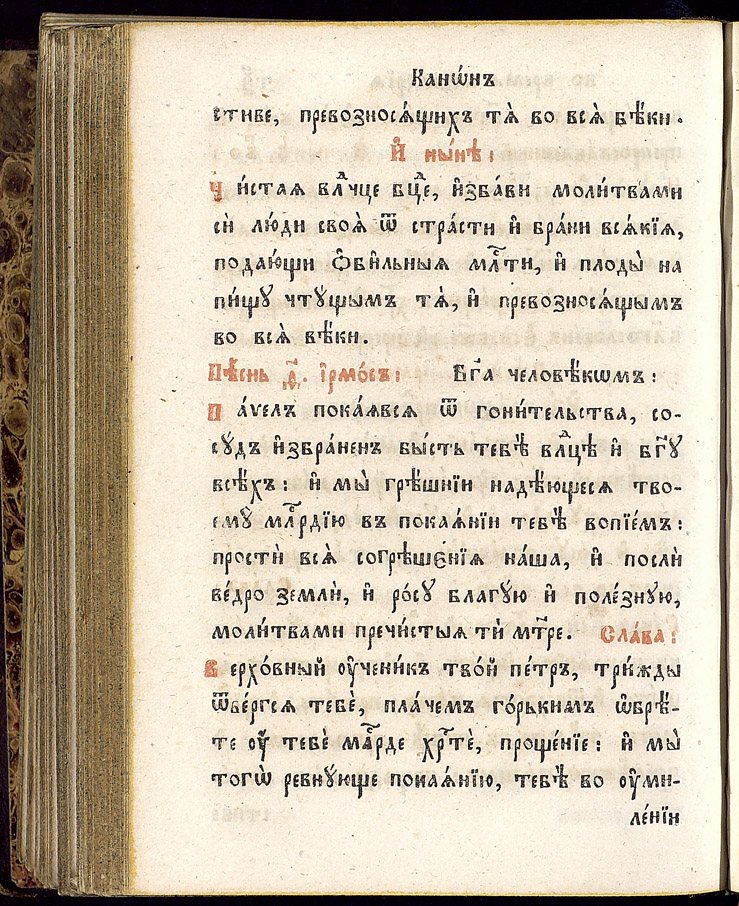 Канѡ́нъ
стиве, превозносѧ́щихъ тѧ̀ во всѧ̀ вѣ́ки.
И҆ ны́нѣ:
Чи́стаѧ влⷣчце бцⷣе, и҆зба́ви моли́твами
сѝ лю́ди своѧ̀ ѿ стра́сти и҆ бра́ни всѧ́кїѧ,
подаю́щи ѻ҆би́льныѧ млⷭти, и҆ плоды̀ на
пи́щꙋ чтꙋ́щымъ тѧ̀, и҆ превозносѧ́щымъ
во всѧ̀ вѣ́ки.
Пѣ́снь ѳ҃. і҆рмо́съ: Бг҃а человѣ́кѡмъ:
Па́ѵелъ пока́ѧвсѧ ѿ гони́тельства, со-
сꙋ́дъ и҆збра́ненъ бы́сть тебѣ̀ влⷣцѣ и҆ бг҃ꙋ
всѣ́хъ: и҆ мы̀ грѣ́шнїи надѣ́ющесѧ тво-
емꙋ̀ млⷭрдїю въ покаѧ́нїи тебѣ̀ вопїе́мъ:
простѝ всѧ̀ согрѣшє́нїѧ на́ша, и҆ послѝ
ве́дро землѝ, и҆ ро́сꙋ благꙋ́ю и҆ поле́знꙋю,
моли́твами пречи́стыѧ тѝ мт҃ре. Сла́ва:
Верхо́вный ᲂу҆чени́къ тво́й пе́тръ, три́жды
ѿве́ргсѧ тебѐ, пла́чемъ го́рькимъ ѡ҆брѣ́-
те ᲂу҆ тебѐ млⷭрде хрⷭтѐ, проще́нїе: и҆ мы̀
тогѡ̀ ревнꙋ́юще покаѧ́нїю, тебѣ̀ во ᲂу҆ми-
ле́нїи